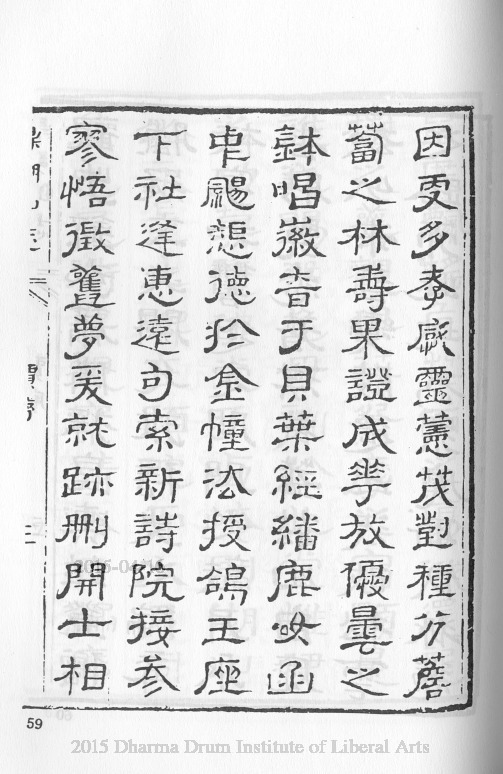 因叓多孝感靈蕙茂對種分薝
蔔之林壽果證成華放優曇之
缽唱徽音于貝葉經繙鹿女函
中颺想德於金幢法授鴿王座
下社逢惠遠句索新詩院接参
寥悟徵舊夢爰就跡刪開士相
三
59
2015 Dharma Drum Institute of Liberal Arts